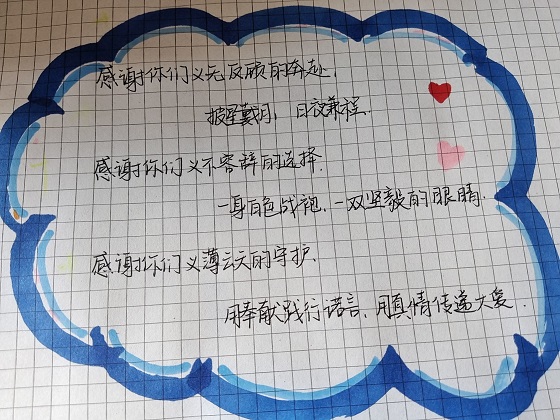 感谢你们义无反顾的奔赴.
披星戴月、日夜兼程.
感谢你们义不容辞的选择.
一身白色战袍、一双坚毅的眼睛.
感谢你们义薄云天的守护.
用奉献践行诺言、用真情传递大爱.